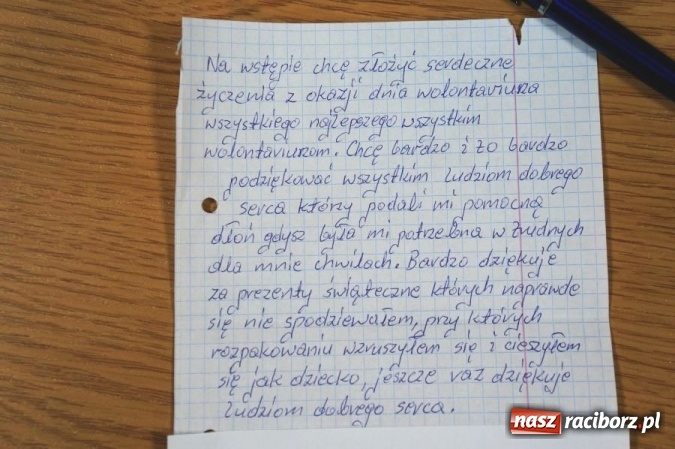 Na wstępie chcę złożyć serdeczne
życzenia z okazji dnia wolontariusza
wszystkiego najlepszego wszystkim
wolontariuszom. Chcę bardzo i to bardzo
podziękować wszystkim ludziom dobrego
serca którzy podali mi pomocną
dłoń gdysz była mi potrzebna w trudnych
dla mnie chwilach. Bardzo dziękuje
za prezenty świąteczne których naprawde
się nie spodziewałem, przy których
rozpakowaniu wzruszyłem się i cieszyłem
się jak dziecko, jeszcze raz dziękuje
ludziom dobrego serca.
nasz raciborz.pl